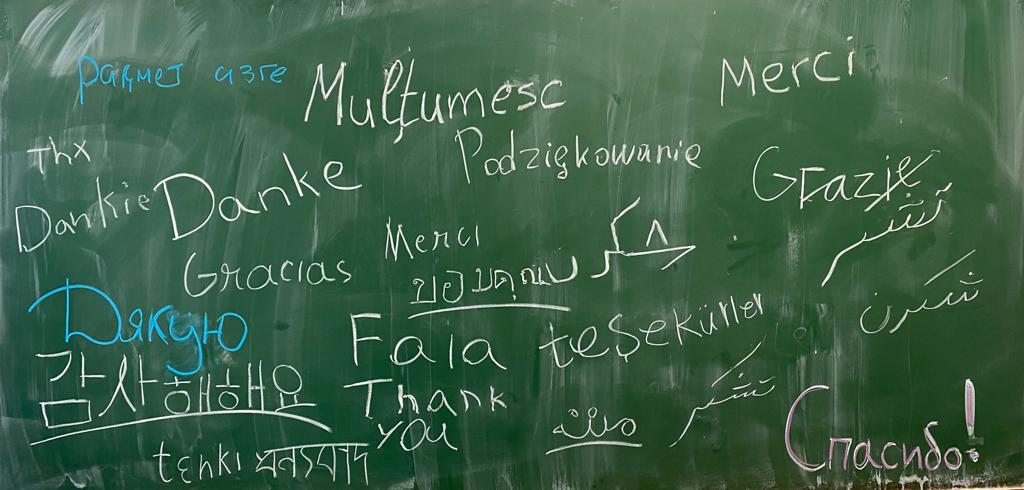 рақмет сізге
Mulțumesc
Merci
Thx
Podziękowanie
Dankie
Danke
Grazie
Merci
Gracias
ขอบคุณ
Дякую
Fala
teşekürler
감사해해요
Thank
you
Спасибо!
tenki
ধন্যবাদ